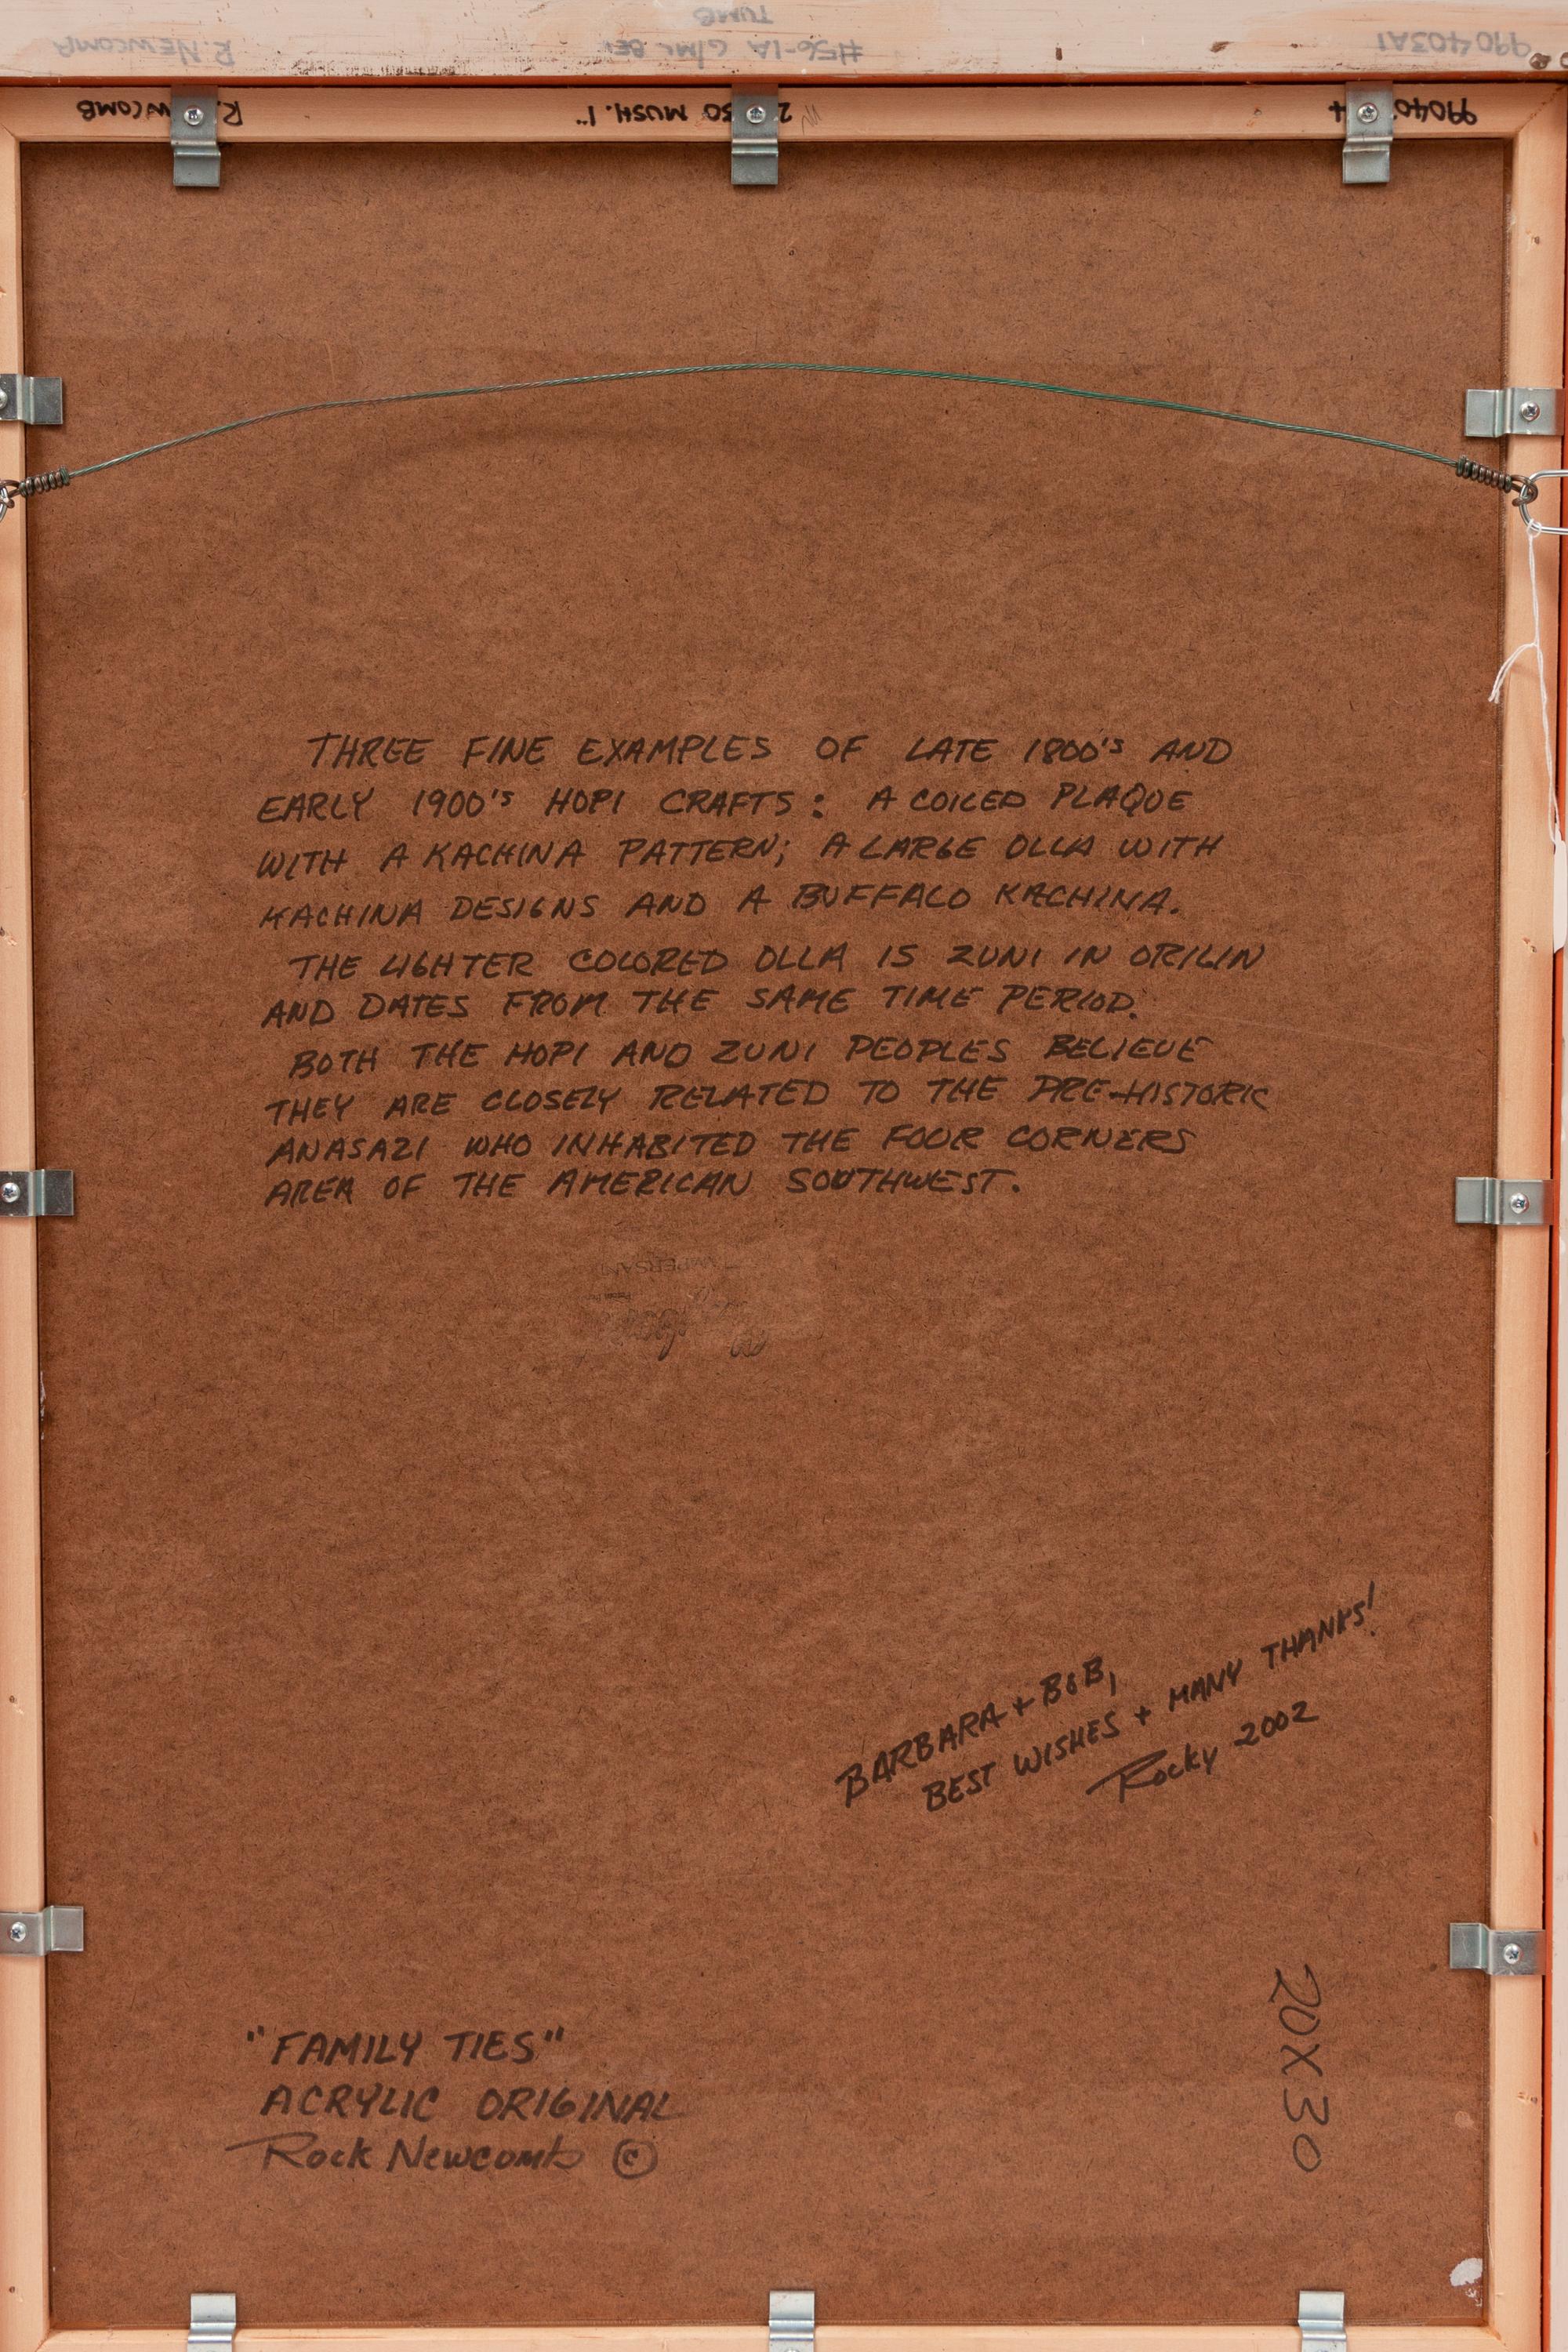 TUMB
R. NEWCOMB #56-1A
R. 30 MUSH. 1"
THREE FINE EXAMPLES OF LATE 1800'S AND
EARLY 1900'S HOPI CRAFTS: A COILED PLAQUE
WITH A KACHINA PATTERN; A LARGE OLLA WITH
KACHINA DESIGNS AND A BUFFALO KACHINA.
THE LIGHTER COLORED OLLA IS ZUNI IN ORIGIN
AND DATES FROM THE SAME TIME PERIOD.
BOTH THE HOPI AND ZUNI PEOPLES BELIEVE
THEY ARE CLOSELY RELATED TO THE PRE-HISTORIC
ANASAZI WHO INHABITED THE FOUR CORNERS
AREA OF THE AMERICAN SOUTHWEST.
AMPERSAND
BARBARA + BOB,
BEST WISHES + MANY THANKS!
Rocky 2002
20X30
"FAMILY TIES"
ACRYLIC ORIGINAL
Rock Newcomb ©